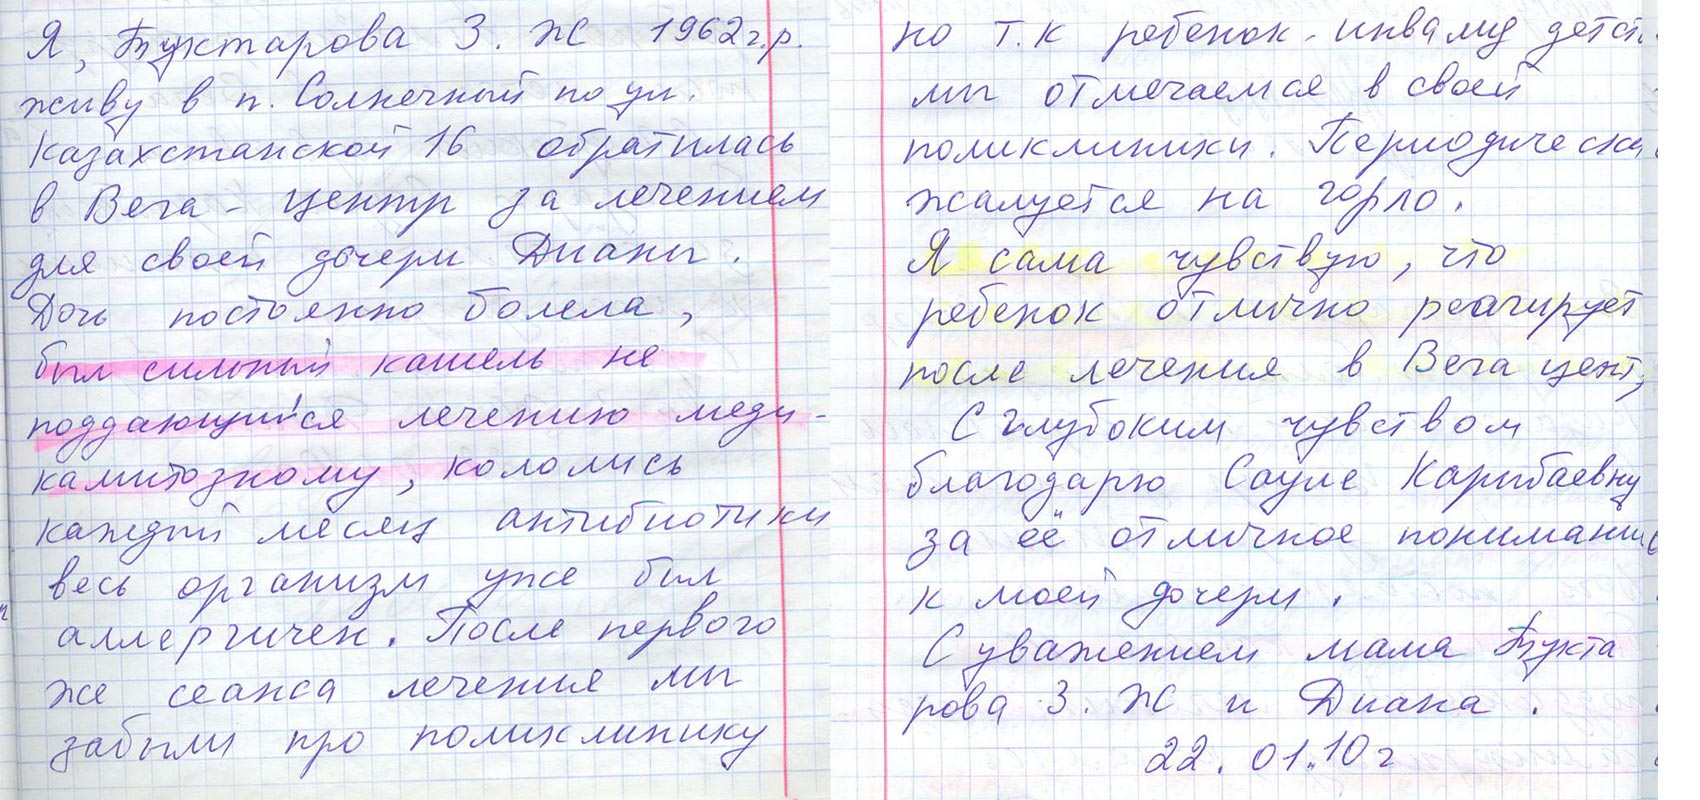 Я, Туктарова З. Ж 1962г.р.
живу в п. Солнечный по ул.
Казахстанской 16 обратилась
в Вега - центр за лечением
для своей дочери Дианы.
Дочь постоянно болела,
был сильный кашель не
поддающийся лечению меди-
камитозному, кололись
каждый месяц антибиотики
весь организм уже был
аллергичен. После первого
же сеанса лечения мы
забыли про поликлинику
но т.к ребенок-инвалид детст.
мы отмечаемся в своей
поликлиники. Периодически
жалуется на горло.
Я сама чувствую, что
ребенок отлично реагирует
после лечения в Вега цент,
С глубоким чувством
благодарю Сауле Карибаевну
за её отличное понимание
к моей дочери.
С уважением мама Тукта
рова З. Ж и Диана.
22.01.10г